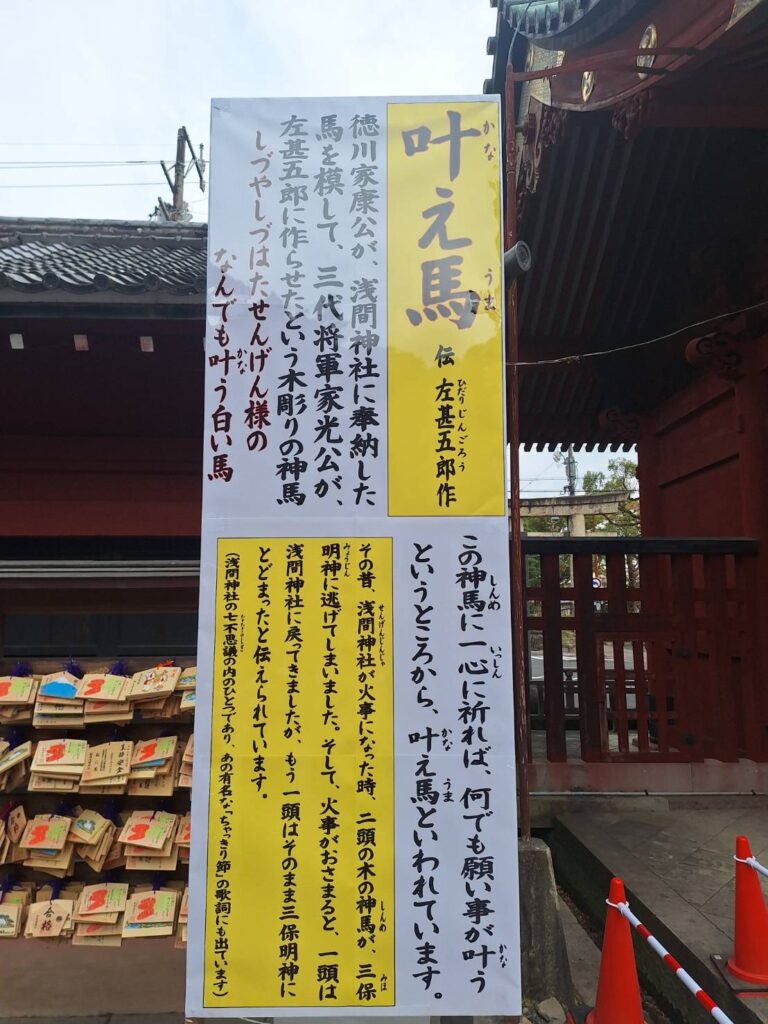 叶え馬
かな
うま
伝 左甚五郎作
ひだりじんごろう
徳川家康公が、浅間神社に奉納した
馬を模して、三代将軍家光公が、
左甚五郎に作らせたという木彫りの神馬
しづやしづはたせんげん様の
なんでも叶う白い馬
かな
この神馬に一心に祈れば、何でも願い事が叶う
しんめ
いっしん
かな
というところから、叶え馬といわれています。
かな
うま
その昔、浅間神社が火事になった時、二頭の木の神馬が、三保
せんげんじんじゃ
しんめ
みほ
明神に逃げてしまいました。そして、火事がおさまると、一頭は
みょうじん
浅間神社に戻ってきましたが、もう一頭はそのまま三保明神に
とどまったと伝えられています。
(浅間神社の七不思議の内のひとつであり、あの有名な「ちゃっきり節」の歌詞にも出ています)
合格